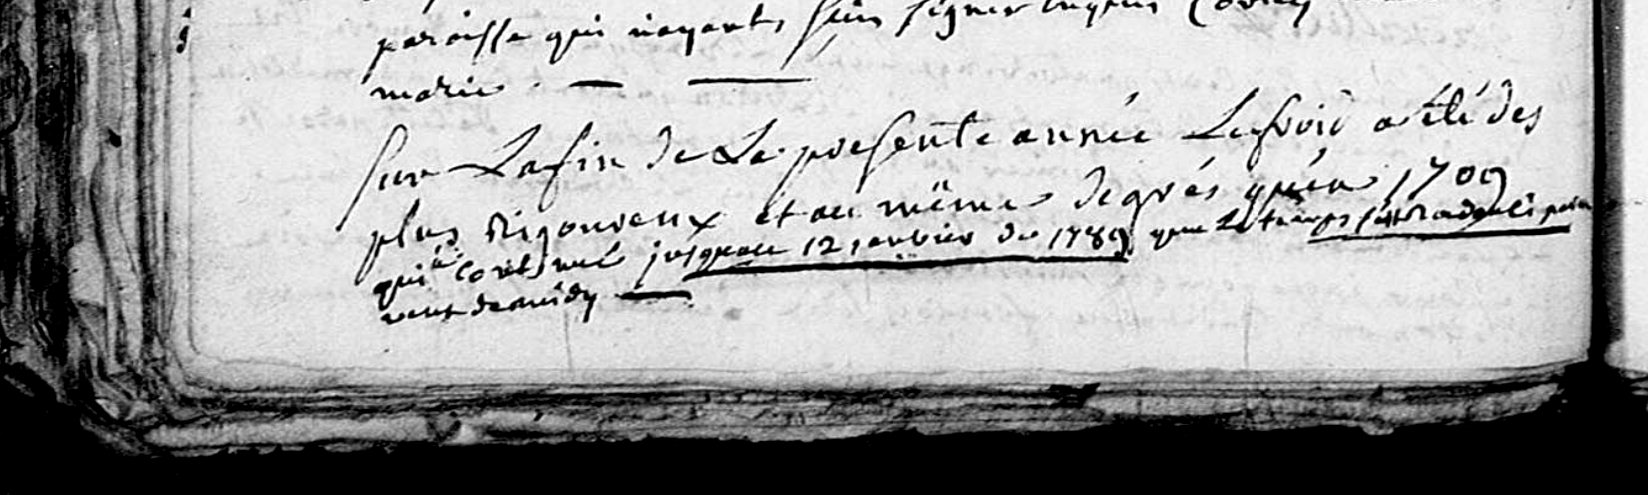 paroisse qui n'ayants sçu signer
marie
Sur La fin de La presente année Le froid a été des
plus Rigoureux et au même degrés qu'en 1709
qui a continué jusquau 12 janvier de 1789 que le temps s'est radouci
vent de midy